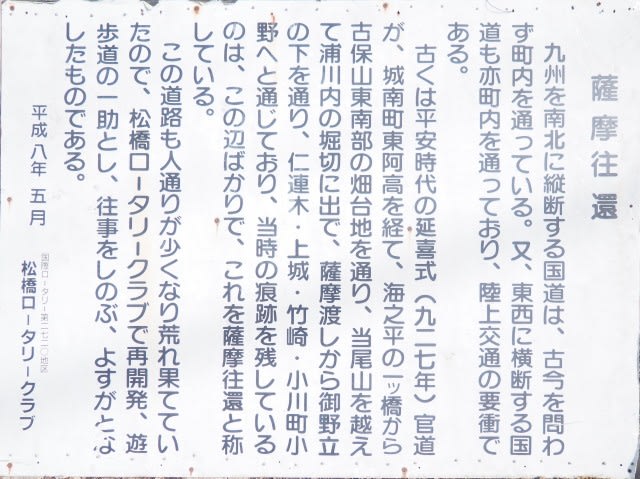 薩摩往還
九州を南北に縦断する国道は、古今を問わ
ず町内を通っている。又、東西に横断する国
道も亦町内を通っており、陸上交通の要衝で
ある。
古くは平安時代の延喜式(九二七年)官道
が、城南町東阿高を経て、海之平の一ッ橋から
古保山東南部の畑台地を通り、当尾山を越え
て浦川内の堀切に出で、薩摩渡しから御野立
の下を通り、仁連木・上城・竹崎・小川町小
野へと通じており、当時の痕跡を残している
のは、この辺ばかりで、これを薩摩往還と称
している。
この道路も人通りが少くなり荒れ果ててい
たので、松橋ロータリークラブで再開発、遊
歩道の一助とし、往事をしのぶ、よすがとな
したものである。
平成八年五月
国際ロータリー第二七二〇地区
松橋ロータリークラブ